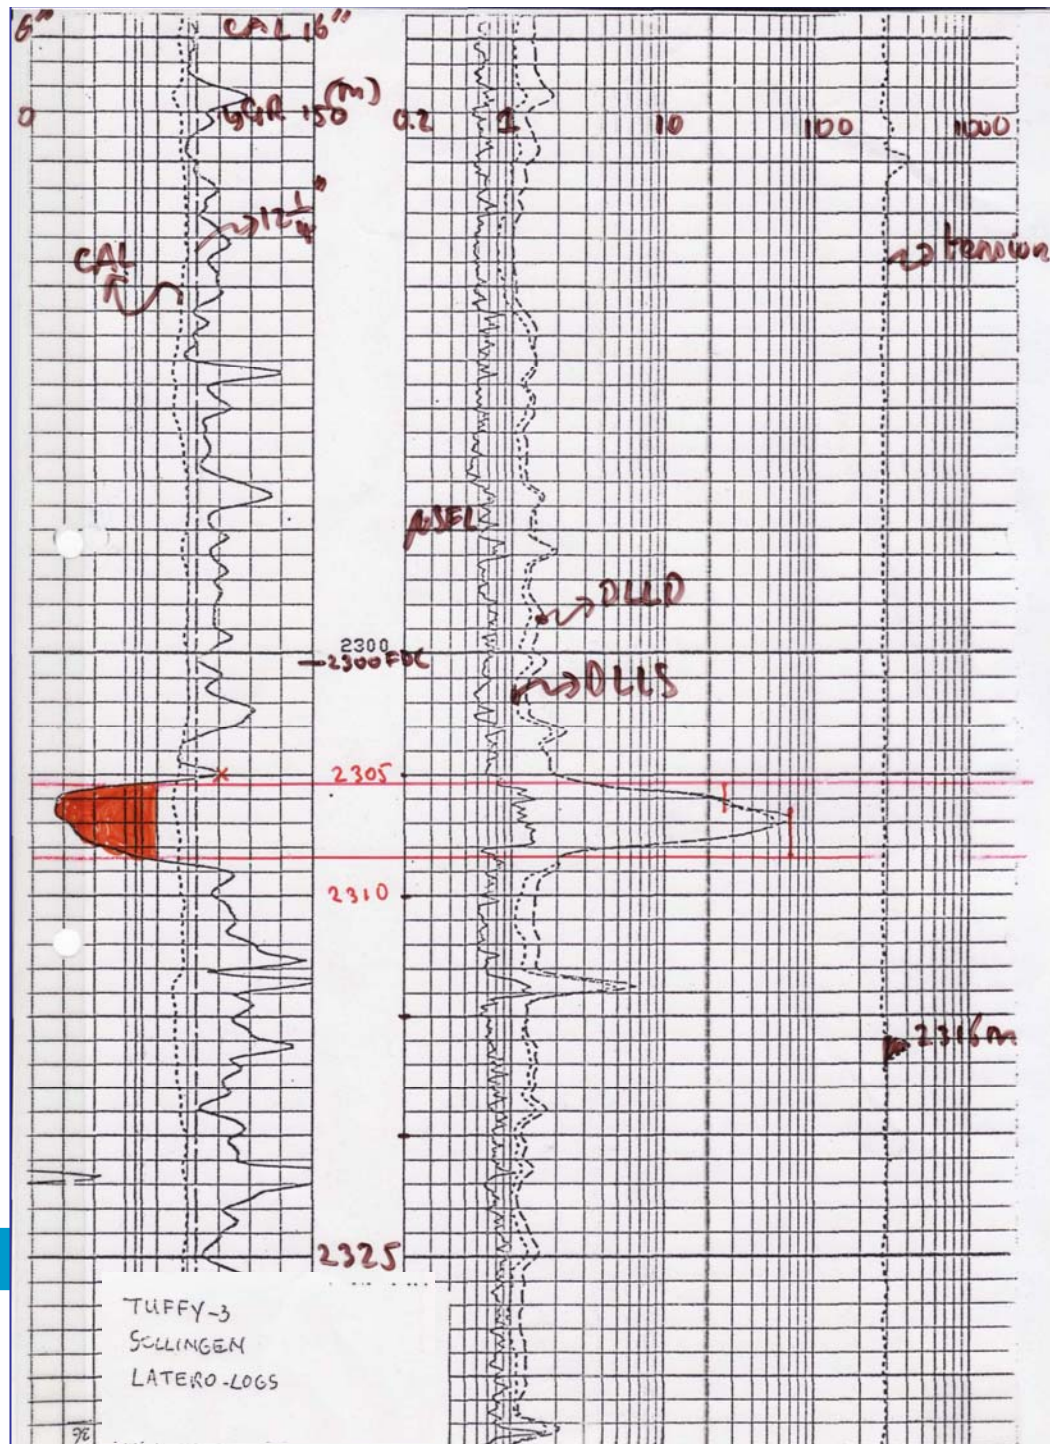 6" CAL 16"
0 GR 150 (m) 0.2 1 10 100 1000
12 1/4"
CAL
tension
µSFL
DLLD
2300
2300 FDC
DLLS
2305
2310
2316m
2325
TUFFY-3
SOLLINGEN
LATERO-LOGS